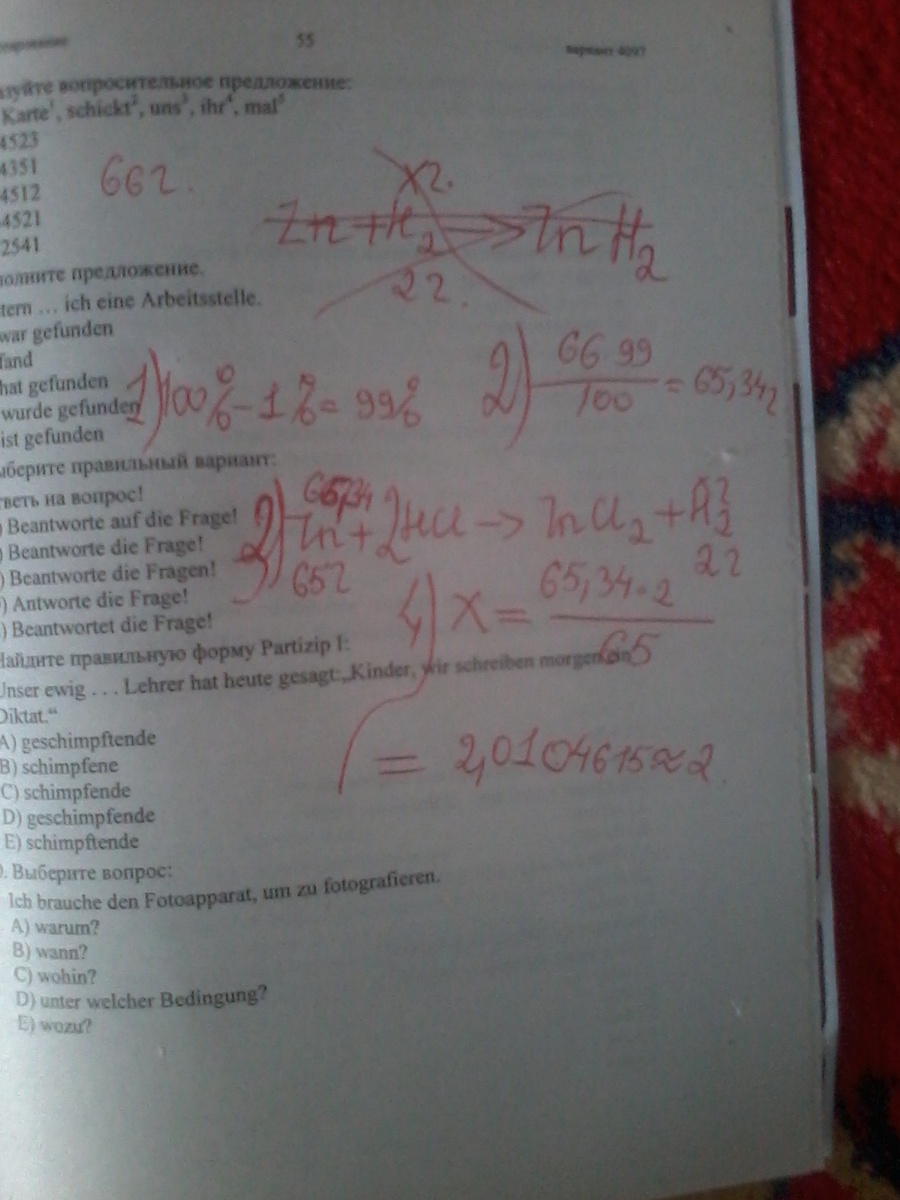 55
вариант 4097
зуйте вопросительное предложение:
Karte¹, schickt², uns³, ihr⁴, mal⁵
4523
4351
4512
4521
2541
66 г.
x г.
Zn + H₂ → Zn H₂
2 г.
олните предложение.
tern … ich eine Arbeitsstelle.
war gefunden
fand
hat gefunden
wurde gefunden
ist gefunden
1) 100% - 1% = 99%
2) 66 99 / 100 = 65,34 г
ыберите правильный вариант:
тветь на вопрос!
) Beantworte auf die Frage!
) Beantworte die Frage!
) Beantworte die Fragen!
) Antworte die Frage!
) Beantwortet die Frage!
65,34
Zn + 2HCl → ZnCl₂ + H₂
65 г
2 г
4) x = 65,34 · 2 / 65
= 2,0104615 ≈ 2
Найдите правильную форму Partizip I:
Unser ewig … Lehrer hat heute gesagt: „Kinder, wir schreiben morgen ein
Diktat.“
A) geschimpftende
B) schimpfene
C) schimpfende
D) geschimpfende
E) schimpftende
). Выберите вопрос:
Ich brauche den Fotoapparat, um zu fotografieren.
A) warum?
B) wann?
C) wohin?
D) unter welcher Bedingung?
E) wozu?